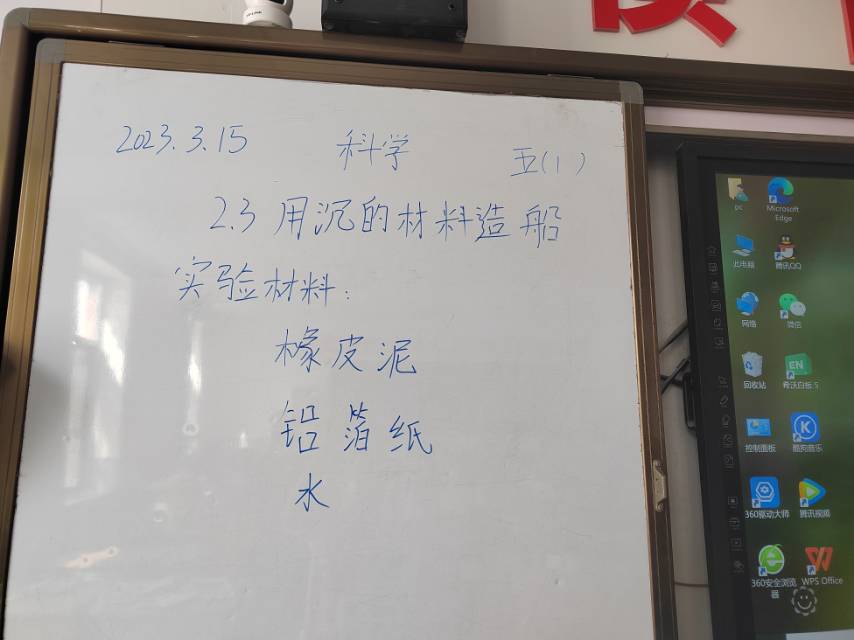 2023.3.15 科学 五(1)
2.3 用沉的材料造船
实验材料:
橡皮泥
铝箔纸
水
pc
Microsoft Edge
此电脑
腾讯QQ
网络
微信
回收站
EN
希沃白板 5
控制面板
K
酷狗音乐
360驱动大师
腾讯视频
360安全浏览器
WPS Office